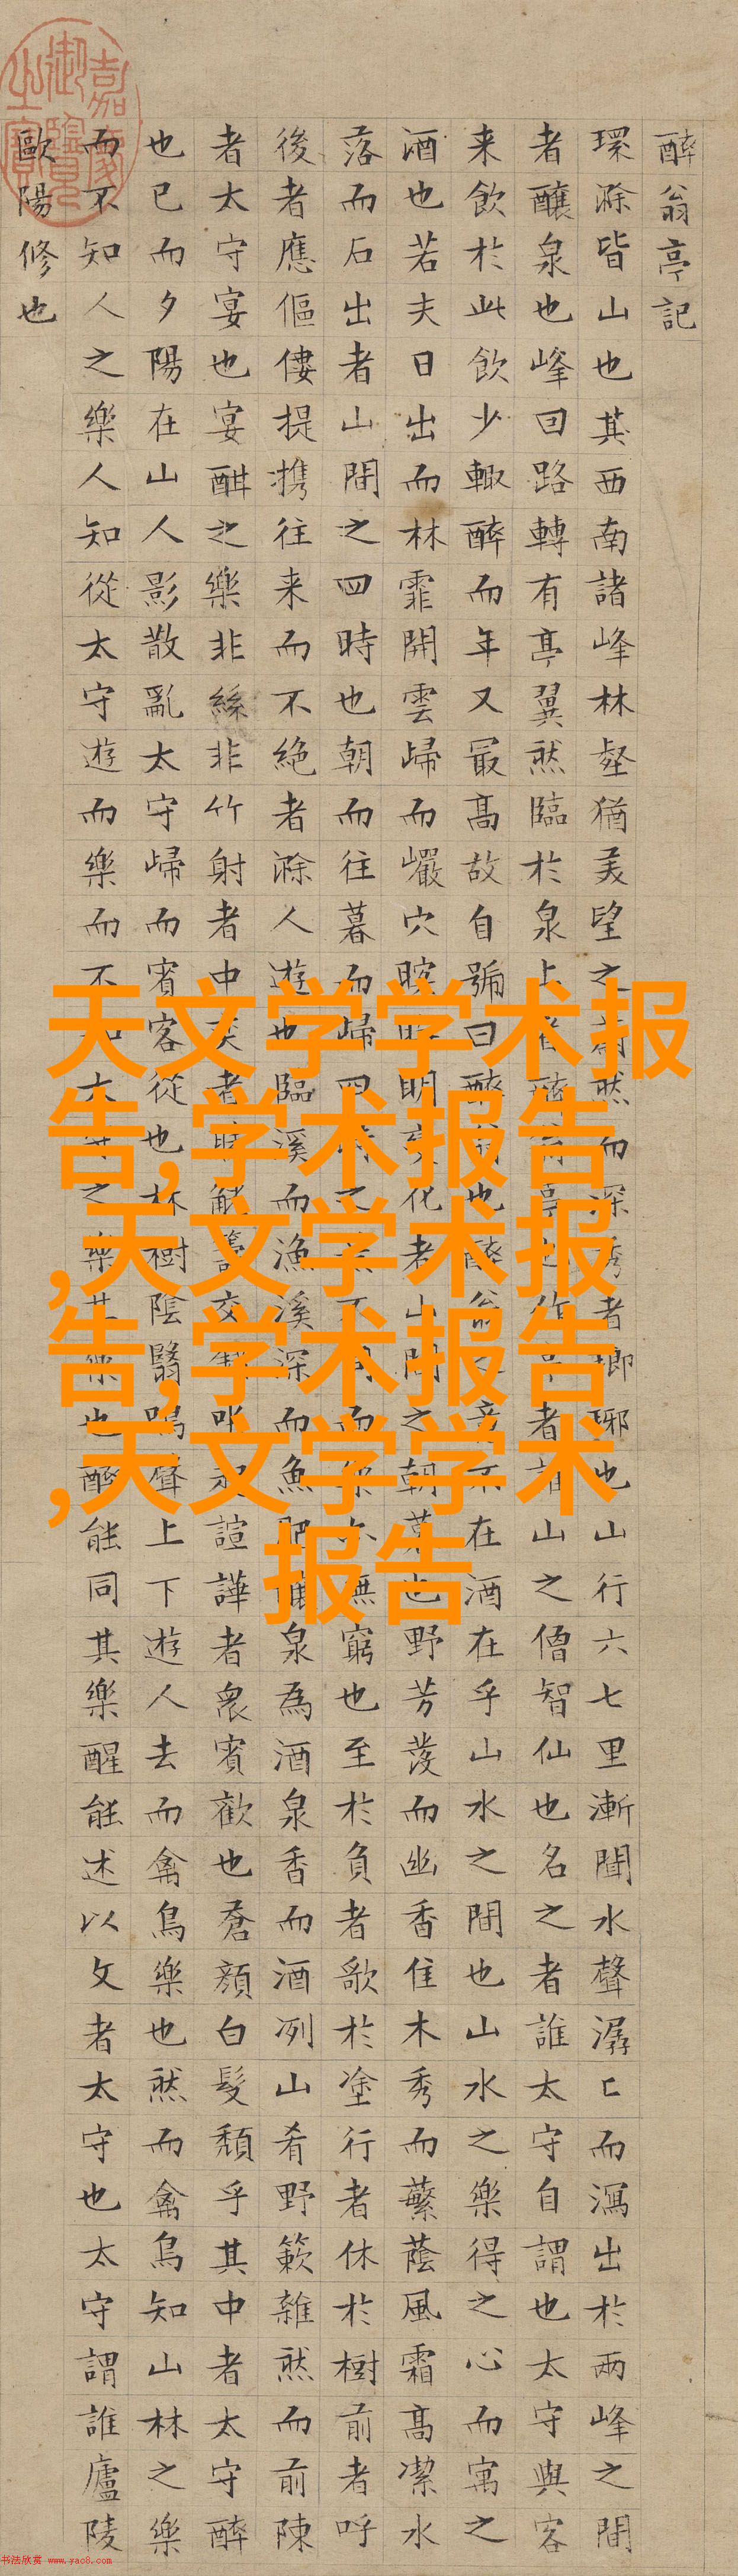 醉翁亭記
環滁皆山也其西南諸峰林壑猶美望之然而深秀者瑯琊也山行六七里漸聞水聲潺〻而瀉出於兩峰之間
者釀泉也峰回路轉有亭翼然臨於泉上者亭者山之僧智仙也名之者誰太守自謂也太守與客
来飲於此飲少輒醉而年又最高故自號曰醉也醉翁在酒在乎山水之間也山水之樂得之心而寓之
酒也若夫日出而林霏開雲歸而巖穴暝明化者山間之朝暮也野芳發而幽香佳木秀而繁蔭風霜高潔水
落而石出者山間之四時也朝而往暮而歸四之而無窮也至於負者歌於塗行者休於樹前者呼
後者應傴僂提携往来而不絶者滁人遊也臨溪而漁溪深而魚肥泉為酒泉香而酒冽山肴野簌雜然而前陳
者太守宴也宴酣之樂非絲非竹射者中者交諠譁者衆賓歡也蒼顏白髮頹乎其中者太守醉
也已而夕陽在山人影散亂太守歸而賓客從也林樹陰翳鳴聲上下遊人去而禽鳥樂也然而禽鳥知山林之樂
而不知人之樂人知從太守遊而樂而不之樂也醉能同其樂醒能述以文者太守也太守謂誰廬陵
歐陽修也
嘉慶御覽之寶
天文学学术报
告,学术报告
,天文学术报
告,学术报告
,天文学学术
报告
书法欣赏 www.yac8.com